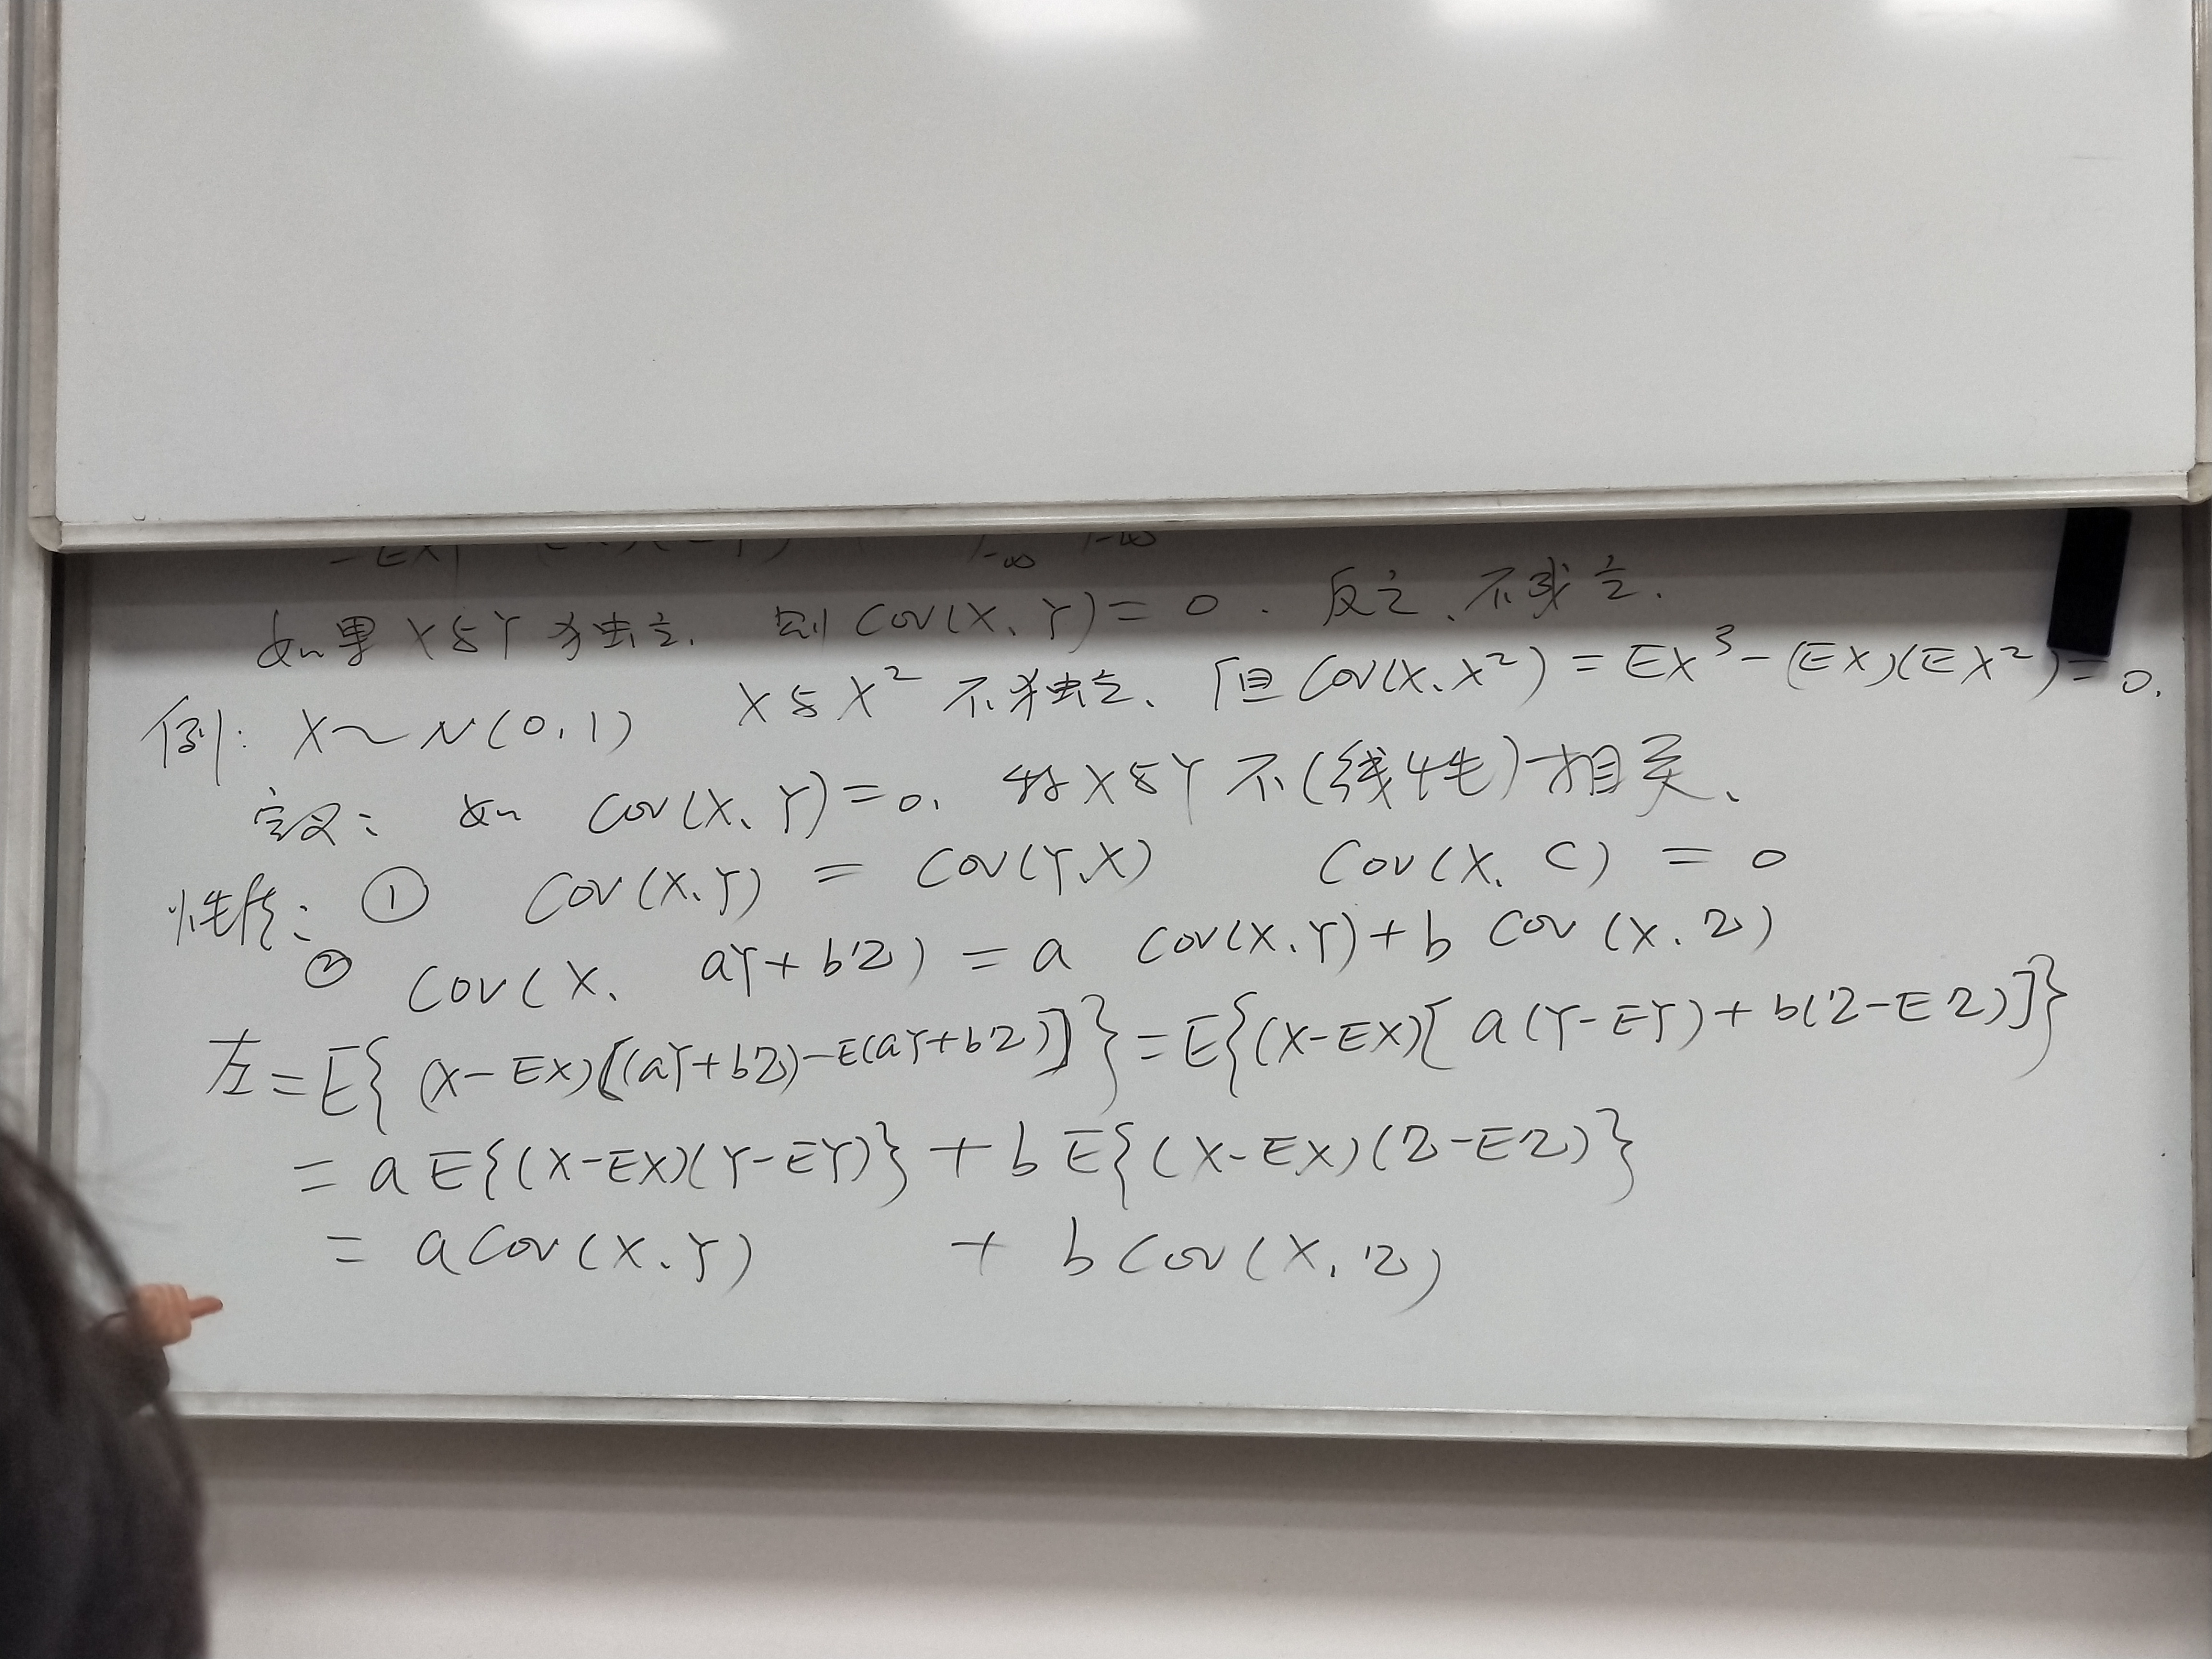 如果X与Y独立. 则 Cov(X、Y)=0. 反之、不成立.
例: X~N(0,1) X与X² 不独立、但Cov(X、X²)=EX³-(EX)(EX²)=0.
定义: 如 Cov(X、Y)=0. 称X与Y不(线性)相关、
性质: ① Cov(X、Y) = Cov(Y,X) Cov(X、C) = 0
② Cov(X、 aY+bZ) = a Cov(X、Y)+b Cov(X、Z)
左=E{(X-EX)[(aY+bZ)-E(aY+bZ)]}=E{(X-EX)[a(Y-EY)+b(Z-EZ)]}
= aE{(X-EX)(Y-EY)} + bE{(X-EX)(Z-EZ)}
= aCov(X、Y) + bCov(X、Z)